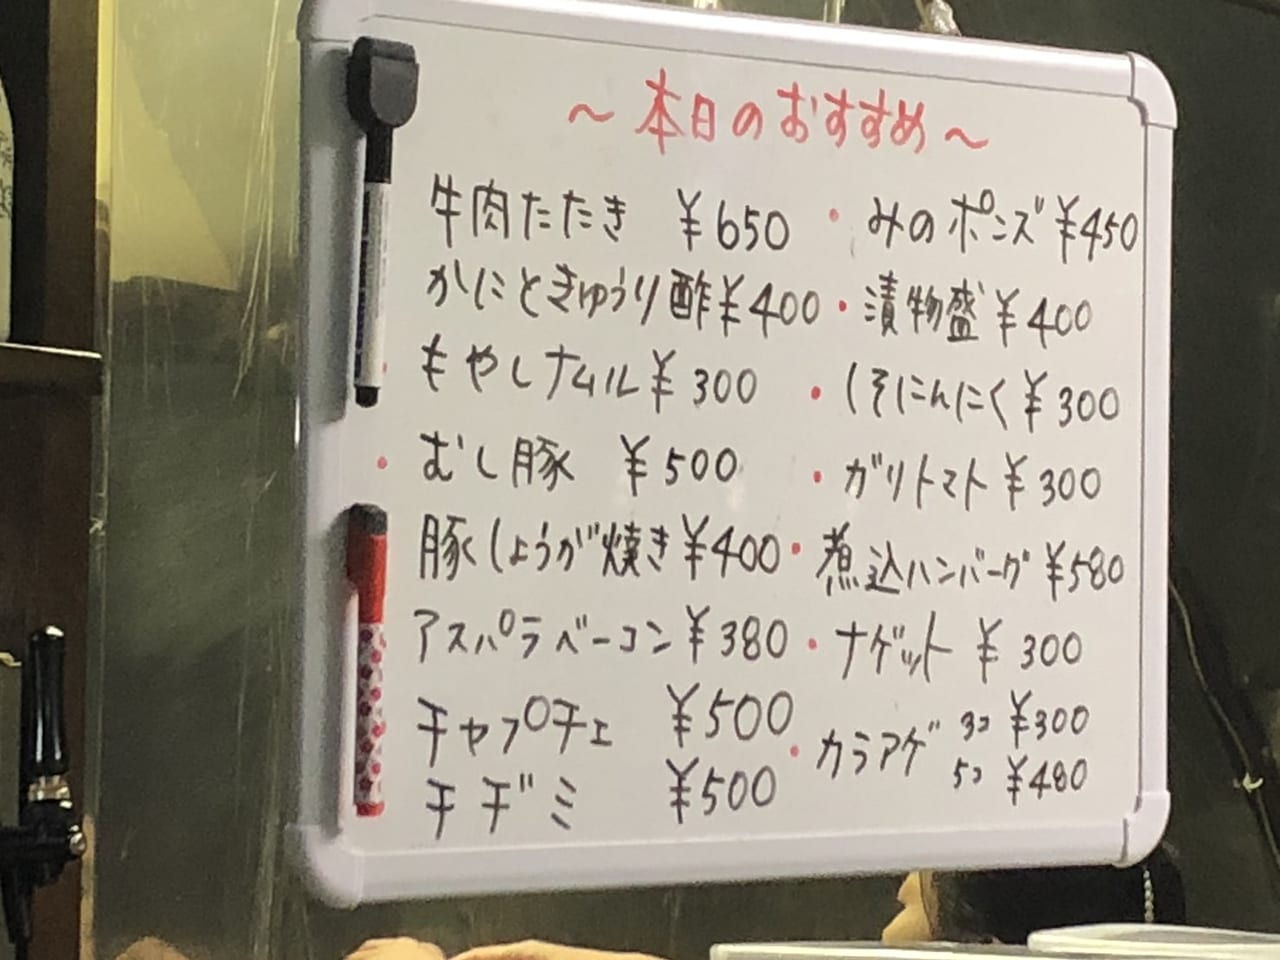 ～本日のおすすめ～
牛肉たたき ¥650
・みのポンズ ¥450
かにときゅうり酢 ¥400
・漬物盛 ¥400
もやしナムル ¥300
・しそにんにく ¥300
・むし豚 ¥500
・ガリトマト ¥300
豚しょうが焼き ¥400
・煮込ハンバーグ ¥580
アスパラベーコン ¥380
・ナゲット ¥300
チャプチェ ¥500
・カラアゲ 3コ ¥300
5コ ¥480
チヂミ ¥500